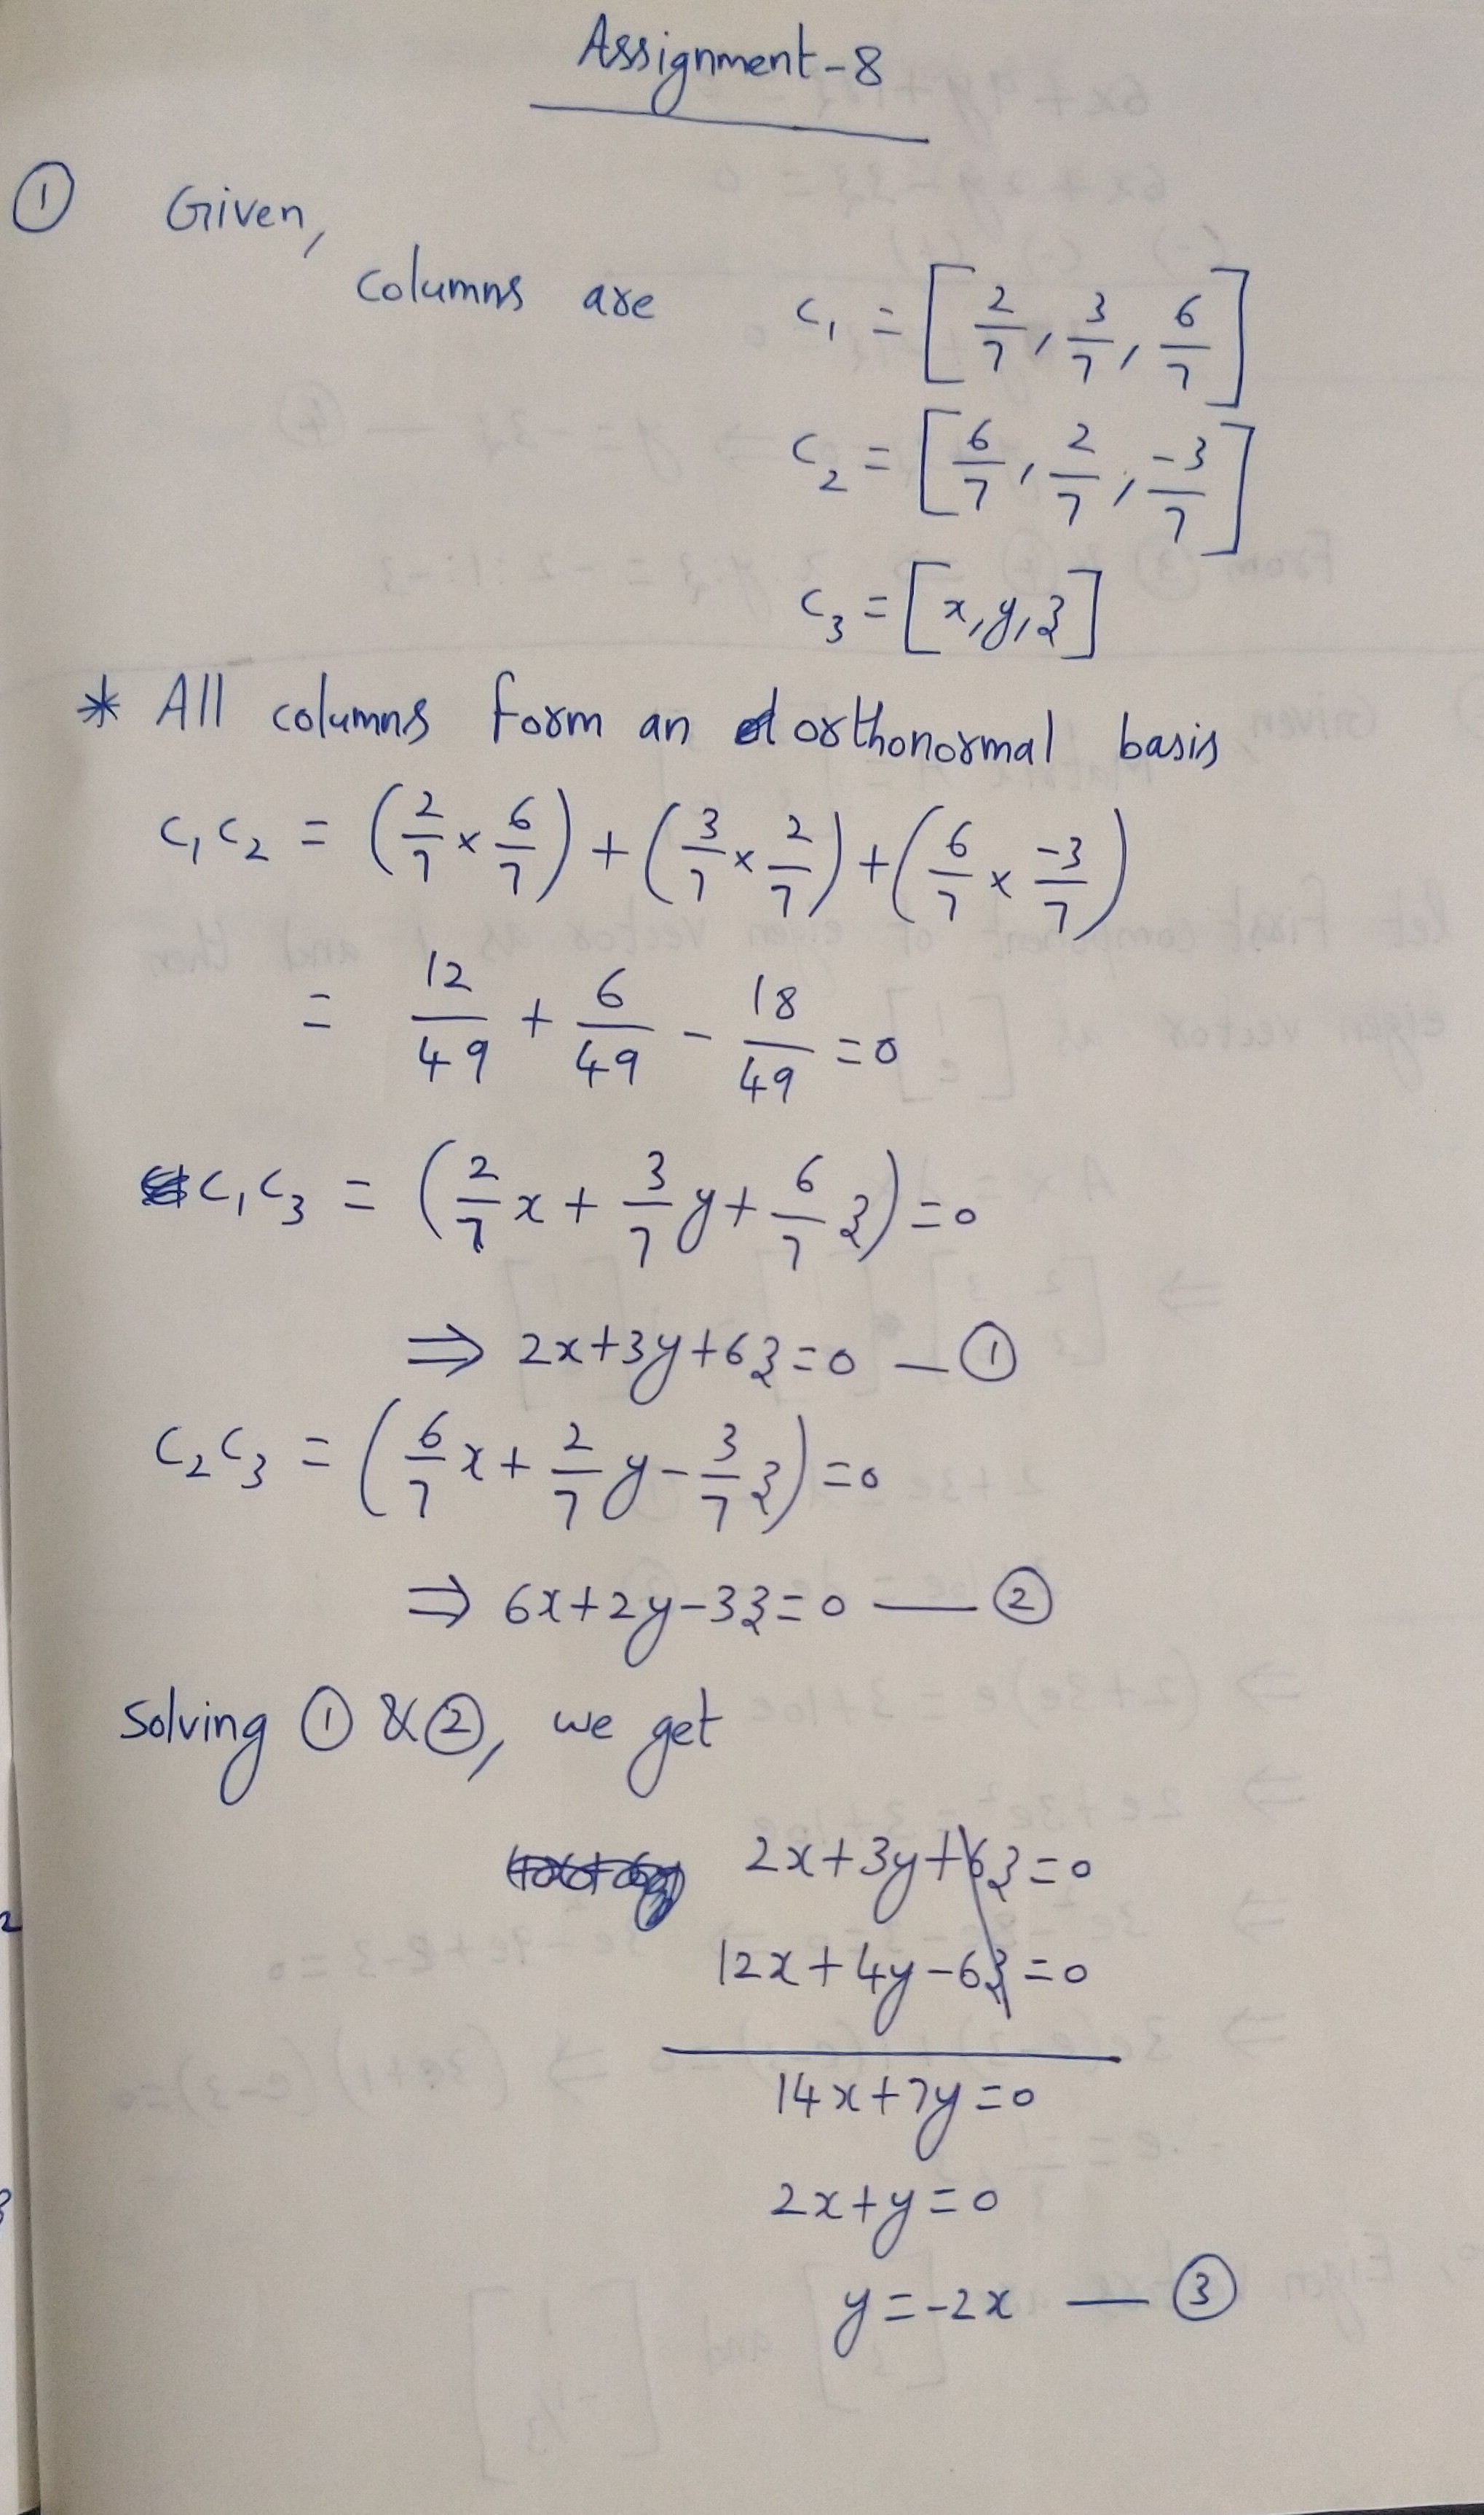 Assignment-8
① Given,
columns are C₁ = [2/7, 3/7, 6/7]
C₂ = [6/7, 2/7, -3/7]
C₃ = [x, y, z]
* All columns form an orthonormal basis
C₁C₂ = (2/7 × 6/7) + (3/7 × 2/7) + (6/7 × -3/7)
= 12/49 + 6/49 - 18/49 = 0
C₁C₃ = (2/7 x + 3/7 y + 6/7 z) = 0
⇒ 2x+3y+6z=0 — ①
C₂C₃ = (6/7 x + 2/7 y - 3/7 z) = 0
⇒ 6x+2y-3z=0 — ②
Solving ① & ②, we get
2x+3y+6z=0
12x+4y-6z=0
14x+7y=0
2x+y=0
y=-2x — ③